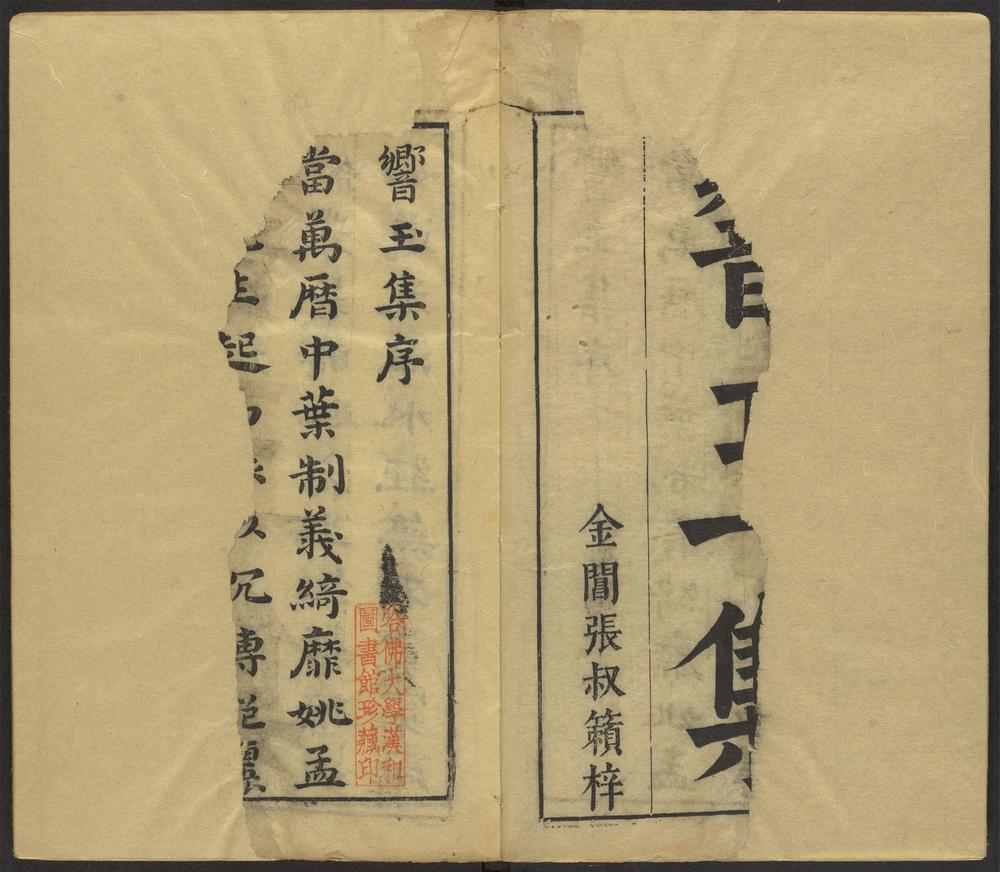 響玉集
金閶張叔籟梓
響玉集序
當萬曆中葉制義綺靡姚孟
生起冗博
哈佛大學漢和
圖書館珍藏印